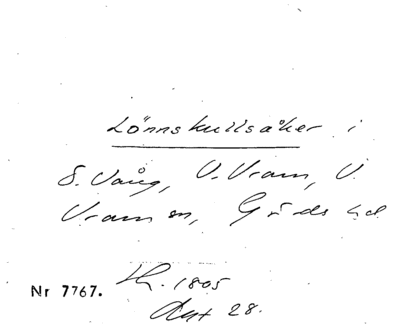 Lönnskullsåker i
S. Vång, V. Vram, V.
Vram sn, Gärds hd
Nr 7767. 1805
28.